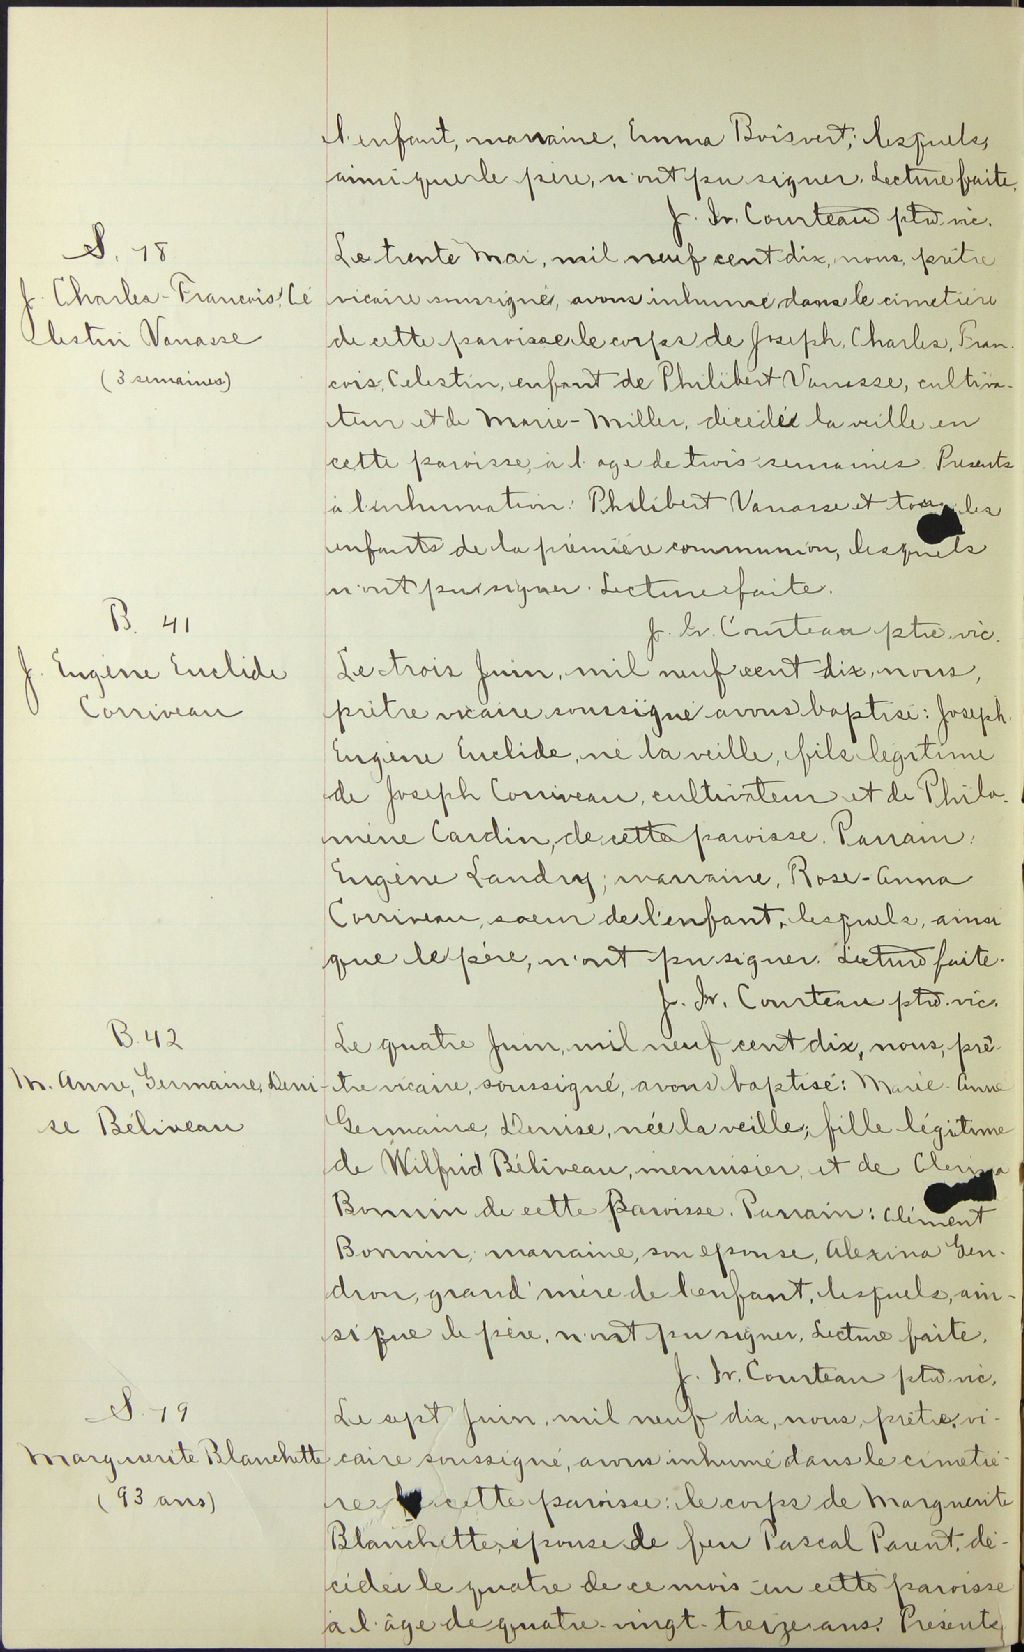 l'enfant, marraine, Emma Boisvert; lesquels,
ainsi que le père, n'ont pu signer. Lecture faite.
J. Courteau ptre vic.
S. 18
J. Charles-Francois Cé
lestin Vanasse
(3 semaines)
Le trente Mai, mil neuf cent dix, nous, prêtre
vicaire soussigné, avons inhumé dans le cimetière
de cette paroisse le corps de Joseph, Charles, Fran-
cois, Celestin, enfant de Philibert Vanasse, cultiva-
teur et de Marie-Miller, décédé la veille en
cette paroisse, à l'age de trois semaines. Présents
à l'inhumation: Philibert Vanasse et tous les
enfants de la première communion, lesquels
n'ont pu signer. Lecture faite.
J. Courteau ptre vic.
B. 41
J. Eugène Euclide
Corriveau
Le trois Juin, mil neuf cent dix, nous,
prêtre vicaire soussigné avons baptisé: Joseph
Eugène Euclide, né la veille, fils légitime
de Joseph Corriveau, cultivateur et de Philo-
mène Cardin, de cette paroisse. Parrain:
Eugène Landry; marraine, Rose-Anna
Corriveau, soeur de l'enfant, lesquels, ainsi
que le père, n'ont pu signer. Lecture faite.
J. Courteau ptre vic.
B. 42
M. Anne, Germaine, Deni-
se Béliveau
Le quatre Juin, mil neuf cent dix, nous, prê-
tre vicaire, soussigné, avons baptisé: Marie-Anne
Germaine, Denise, née la veille; fille légitime
de Wilfrid Béliveau, menuisier, et de
Bonnin de cette Paroisse. Parrain: Clément
Bonnin; marraine, son epouse, Alexina Gen-
dron, grand'mère de l'enfant, lesquels, ain-
si que le père, n'ont pu signer. Lecture faite.
J. Courteau ptre vic.
S. 19
Marguerite Blanchette
(93 ans)
Le sept Juin, mil neuf dix, nous, prêtre, vi-
caire soussigné, avons inhumé dans le cimetiè-
re de cette paroisse: le corps de Marguerite
Blanchette, épouse de feu Pascal Parent, dé-
cédée le quatre de ce mois en cette paroisse
à l'âge de quatre-vingt-treize ans. Présents